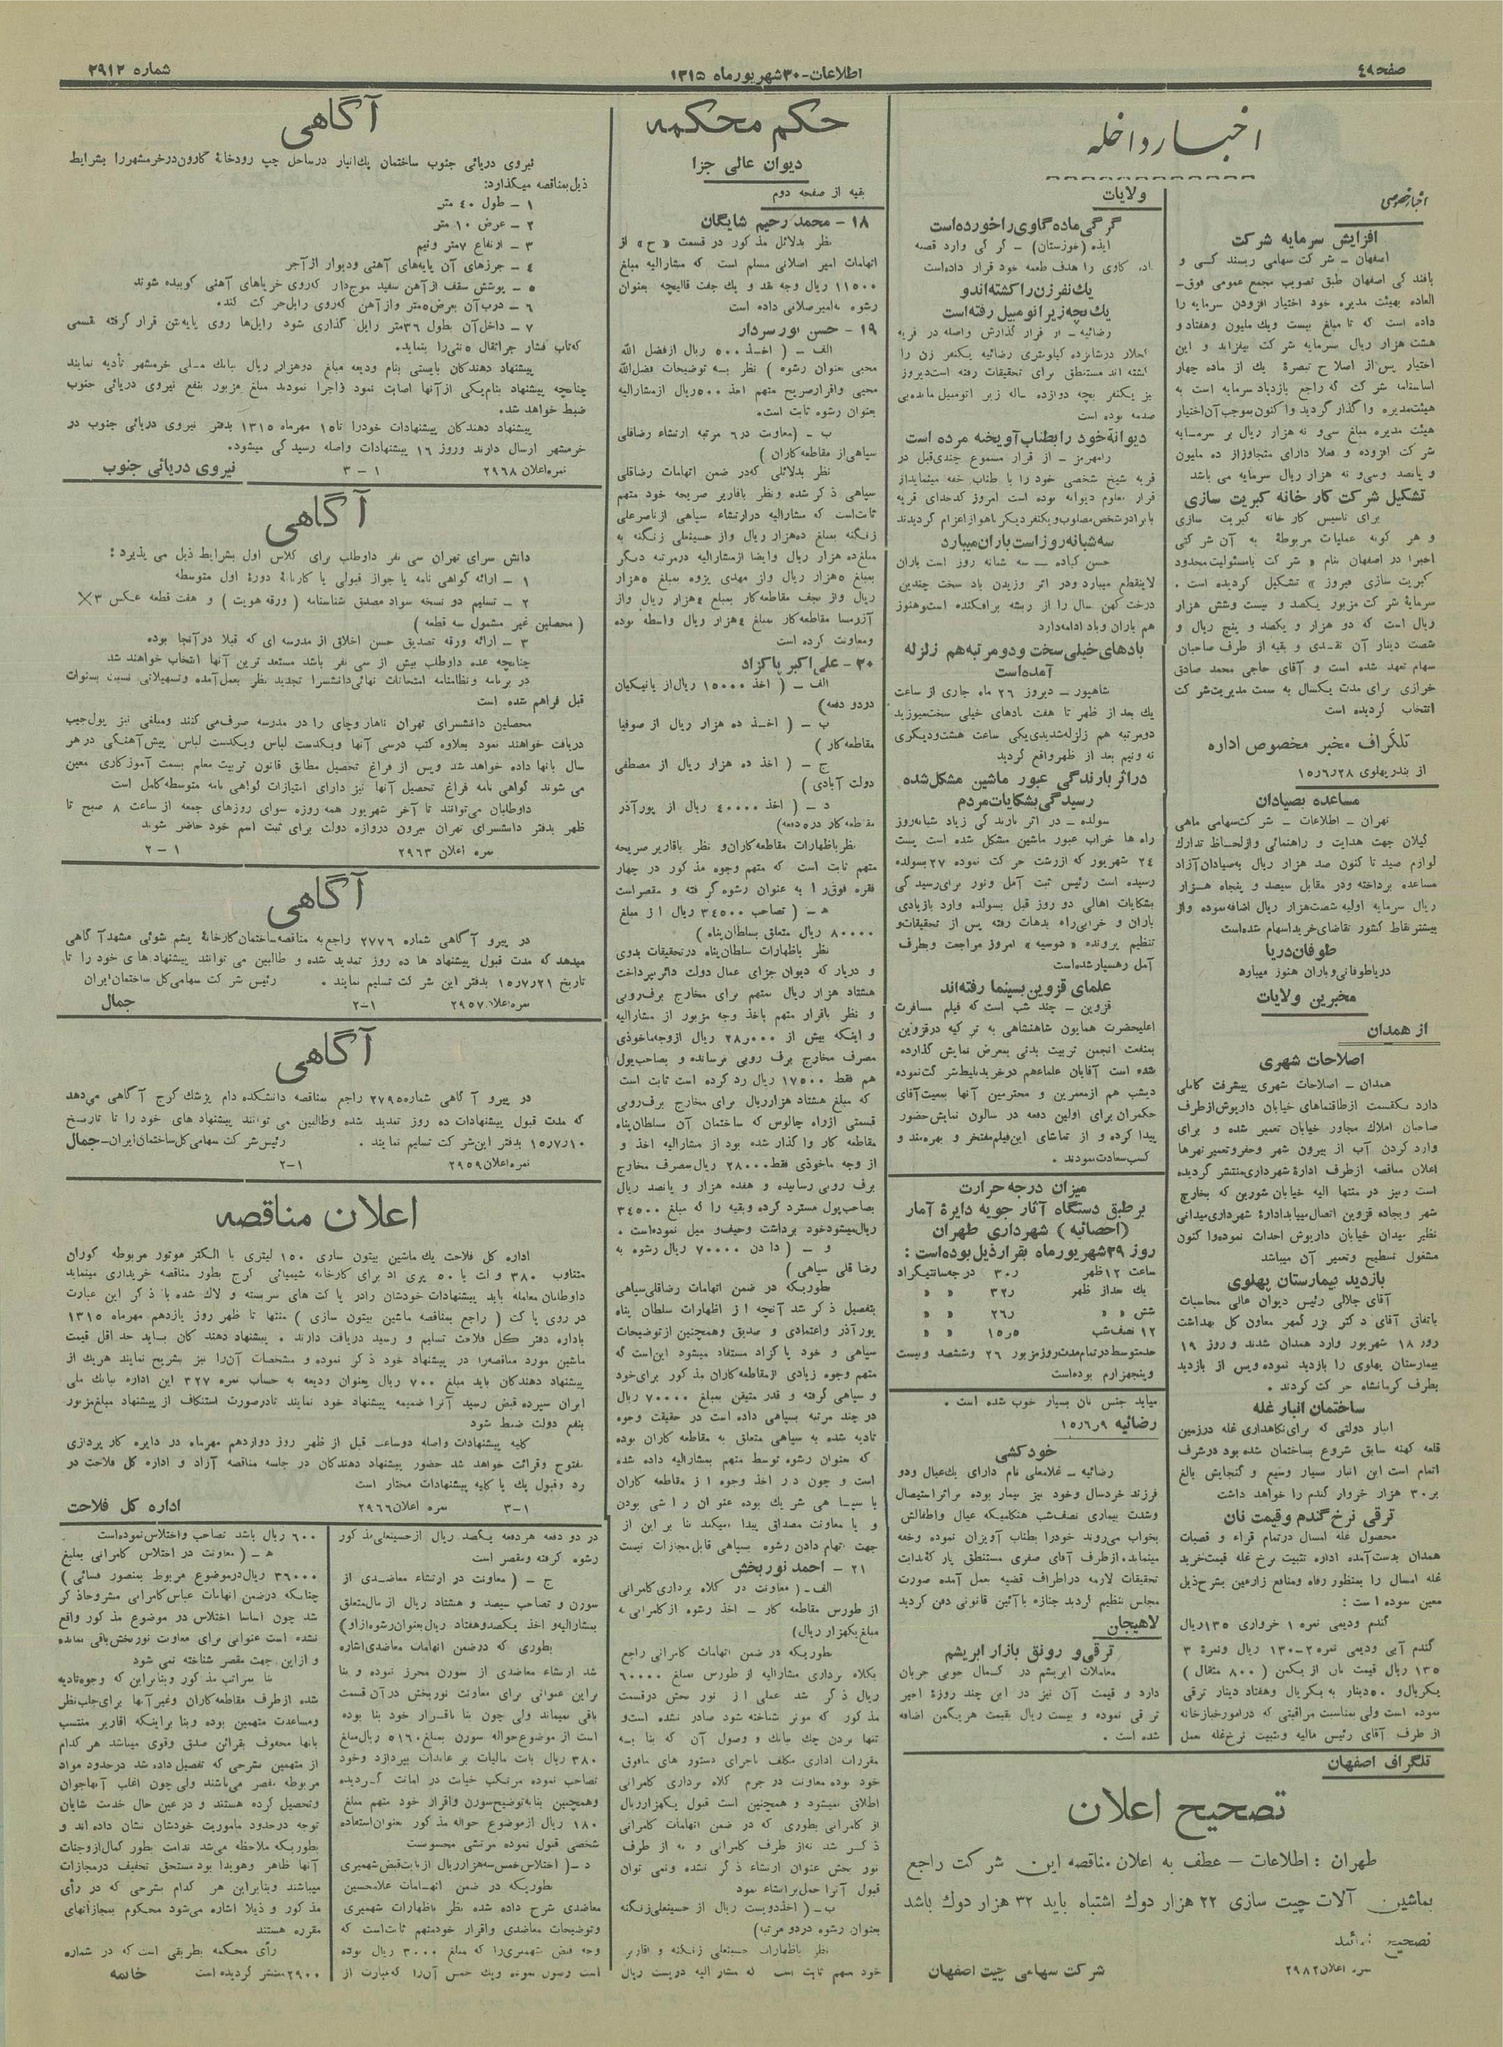 صفحه ٤٩
اطلاعات - ۳۰ شهریور ماه ۱۳۱۵
شماره ۲۹۱۲
اخبار داخله
اخبار خصوصی
افزایش سرمایه شرکت
اصفهان - شرکت سهامی ریسندگی و
بافندگی اصفهان طبق تصویب مجمع عمومی فوق-
العاده بهیئت مدیره خود اختیار افزودن سرمایه را
داده است که تا مبلغ بیست ویک ملیون وهفتاد و
هشت هزار ریال سرمایه شرکت بیفزاید و این
اختیار پس از اصلاح تبصرۀ یک از ماده چهار
اساسنامه شرکت که راجع بازدیاد سرمایه است به
هیئت مدیره واگذار گردید واکنون بموجب آن اختیار
هیئت مدیره مبلغ سی و نه هزار ریال بر سرمایه
شرکت افزوده و فعلا دارای متجاوز از ده ملیون
و پانصد وسی و نه هزار ریال سرمایه می باشد
تشکیل شرکت کارخانه کبریت سازی
برای تاسیس کارخانه کبریت سازی
و هر گونه عملیات مربوطۀ به آن شرکتی
اخیرا در اصفهان بنام « شرکت بامسئولیت محدود
کبریت سازی فیروز » تشکیل گردیده است .
سرمایۀ شرکت مزبور یکصد و بیست وشش هزار
ریال است که دو هزار و یکصد و پنج ریال و
شصت دینار آن نقدی و بقیه از طرف صاحبان
سهام تعهد شده است و آقای حاجی محمد صادق
خرازی برای مدت یکسال به سمت مدیریت شرکت
انتخاب گردیده است
تلگراف مخبر مخصوص اداره
از بندر پهلوی ۱۵٫۶٫۲۸
مساعده بصیادان
تهران - اطلاعات - شرکت سهامی ماهی
گیلان جهت هدایت و راهنمائی وازلحاظ تدارک
لوازم صید تا کنون صد هزار ریال به صیادان آزاد
مساعده پرداخته ودر مقابل سیصد و پنجاه هزار
ریال سرمایه اولیه شصت هزار ریال اضافه نموده واز
بیشتر نقاط کشور تقاضای خرید اسهام شده است
طوفان دریا
دریا طوفانی و باران هنوز میبارد
مخبرین ولایات
از همدان
اصلاحات شهری
همدان - اصلاحات شهری پیشرفت کاملی
دارد یکقسمت از طاقنماهای خیابان داریوش ازطرف
صاحبان املاک مجاور خیابان تعمیر شده و برای
وارد کردن آب از بیرون شهر وحفر وتعمیر نهرها
اعلان مناقصه ازطرف ادارۀ شهرداری منتشر گردیده
است ونیز در منتها الیه خیابان شورین که بخارج
شهر وبجاده قزوین اتصال مییابد ادارۀ شهرداری میدانی
نظیر میدان خیابان داریوش احداث نموده واکنون
مشغول تسطیح وتعمیر آن میباشد
بازدید بیمارستان پهلوی
آقای جلالی رئیس دیوان عالی محاسبات
باتفاق آقای دکتر بزرگمهر معاون کل بهداشت
روز ۱۸ شهریور وارد همدان شدند و روز ۱۹
بیمارستان پهلوی را بازدید نموده وپس از بازدید
بطرف کرمانشاه حرکت کردند .
ساختمان انبار غله
انبار دولتی که برای نگاهداری غله در زمین
قلعه کهنه سابق شروع بساختمان شده بود در شرف
اتمام است این انبار بسیار وسیع و گنجایش بالغ
بر ۳۰ هزار خروار گندم را خواهد داشت
ترقی نرخ گندم وقیمت نان
محصول غله امسال درتمام قراء و قصبات
همدان بدست آمده اداره تثبیت نرخ غله قیمت خرید
غله امسال را بمنظور رفاه ومنافع زارعین بشرح ذیل
معین نموده است :
گندم ودیمی نمره ۱ خرواری ۱۳۵ ریال
گندم آبی ودیمی نمره ۲-۱۳۰ ریال ونمرۀ ۳
۱۳۵ ریال قیمت نان از یکمن ( ۸۰۰ مثقال )
یکریال و ۵۰ دینار به یکریال وهفتاد دینار ترقی
نموده است ولی بمناسبت مراقبتی که درامور خبازخانه
از طرف آقای رئیس مالیه وتثبیت نرخ غله بعمل
ولایات
گرگی ماده گاوی را خورده است
ایذه (خوزستان) - گرگی وارد قصبه
گاوی را هدف طعمه خود قرار داده است
یک نفر زن را کشته اند و
یک بچه زیر اتومبیل رفته است
رضائیه - از قرار گذارش واصله در قریه
در شانزده کیلومتری رضائیه یکنفر زن را
کشته اند مستنطق برای تحقیقات رفته است دیروز
نیز یکنفر بچه دوازده ساله زیر اتومبیل مانده بی
صدمه بوده است
دیوانۀ خود را بطناب آویخته مرده است
رامهرمز - از قرار مسموع چندی قبل در
قریه شیخ شخصی خود را با طناب خفه مینماید از
قرار معلوم دیوانه بوده است امروز کدخدای قریه
با برادر شخص مصلوب ویکنفر دیگر باهواز اعزام گردیدند
سه شبانه روز است باران میبارد
حسن کیاده - سه شبانه روز است باران
لاینقطع میبارد ودر اثر وزیدن باد سخت چندین
درخت کهن سال را از ریشه برافکنده است وهنوز
هم باران وباد ادامه دارد
بادهای خیلی سخت ودو مرتبه هم زلزله
آمده است
شاهپور - دیروز ۲۶ ماه جاری از ساعت
یک بعد از ظهر تا هفت بادهای خیلی سخت میوزید
دو مرتبه هم زلزله شدیدی یکی ساعت هشت ودیگری
نه ونیم بعد از ظهر واقع گردید
در اثر بارندگی عبور ماشین مشکل شده
رسیدگی بشکایات مردم
سولده - در اثر بارندگی زیاد شبانه روز
راه ها خراب عبور ماشین مشکل شده است پست
۲٤ شهریور که از رشت حرکت نموده ۲۷ بسولده
رسیده است رئیس ثبت آمل ونور برای رسیدگی
بشکایات اهالی دو روز قبل بسولده وارد بازیادی
باران و خرابی راه بدهات رفته پس از تحقیقات و
تنظیم پرونده « دوسیه » امروز مراجعت وبطرف
آمل رهسپار شده است
علمای قزوین بسینما رفته اند
قزوین - چند شب است که فیلم مسافرت
اعلیحضرت همایون شاهنشاهی به ترکیه در قزوین
بمنفعت انجمن تربیت بدنی بمعرض نمایش گذارده
شده است آقایان علماء هم در خرید بلیط شرکت نموده
دیشب هم از معمرین و محترمین آنها بمعیت آقای
حکمران برای اولین دفعه در سالون نمایش حضور
پیدا کرده و از تماشای این فیلم مفتخر و بهره مند و
کسب سعادت نمودند .
میزان درجه حرارت
بر طبق دستگاه آثار جویه دایرۀ آمار
(احصائیه) شهرداری طهران
روز ۲۹ شهریور ماه بقرار ذیل بوده است :
ساعت ۱۲ ظهر ۳۰٫ درجه سانتیگراد
یک بعد از ظهر ۳۲٫ « «
شش « « ۲۶٫ « «
۱۲ نصف شب ۱۵٫۵ « «
حد متوسط در تمام مدت روز مزبور ۲۶ وششصد وبیست
وپنجهزارم بوده است
میاید جنس نان بسیار خوب شده است .
رضائیه ۱۵٫۶٫۹
خودکشی
رضائیه - غلامعلی نام دارای یک عیال ودو
فرزند خردسال وخود نیز بیمار بوده بر اثر استیصال
وشدت بیماری نصف شب هنگامیکه عیال واطفالش
بخواب می روند خود را بطناب آویزان نموده وخفه
مینماید. از طرف آقای صفری مستنطق پارکه بدایت
تحقیقات لازمه در اطراف قضیه بعمل آمده صورت
مجلس تنظیم گردید جنازه با آئین قانونی دفن گردید
لاهیجان
ترقی و رونق بازار ابریشم
معاملات ابریشم در کمال خوبی جریان
دارد و قیمت آن نیز در این چند روزۀ اخیر
ترقی نموده و بیست ریال بقیمت هر یکمن اضافه
شده است .
تلگراف اصفهان
تصحیح اعلان
طهران : اطلاعات - عطف به اعلان مناقصه این شرکت راجع
بماشین آلات چیت سازی ۲۲ هزار دوک اشتباه باید ۳۲ هزار دوک باشد
تصحیح نمائید
نمره اعلان ۲۹۸۲
شرکت سهامی چیت اصفهان
حکم محکمه
دیوان عالی جزا
بقیه از صفحه دوم
۱۸ - محمد رحیم شایگان
نظر بدلائل مذکور در قسمت « ح » از
اتهامات امیر اصلانی مسلم است که مشارالیه مبلغ
۱۱۵۰۰ ریال وجه نقد و یک جفت قالیچه بعنوان
رشوه به امیر صلانی داده است
۱۹ - حسن پور سردار
الف - ( اخذ ۵۰۰ ریال از فضل الله
محبی بعنوان رشوه ) نظر به توضیحات فضل الله
محبی واقرار صریح متهم اخذ ۵۰۰ ریال از مشارالیه
بعنوان رشوه ثابت است.
ب - (معاونت در ٦ مرتبه ارتشاء رضاقلی
سپاهی از مقاطعه کاران )
نظر بدلائلی که در ضمن اتهامات رضاقلی
سپاهی ذکر شده ونظر باقاریر صریحه خود متهم
ثابت است که مشارالیه در ارتشاء سپاهی از ناصر علی
زنگنه بمبلغ ده هزار ریال واز حسینعلی زنگنه به
مبلغ ده هزار ریال وایضا از مشارالیه در مرتبه دیگر
بمبلغ ۵ هزار ریال واز مهدی پزوه بمبلغ ۵ هزار
ریال واز نجف مقاطعه کار بمبلغ ٤ هزار ریال واز
آزرمسا مقاطعه کار بمبلغ ٤ هزار ریال واسطه بوده
ومعاونت کرده است
۲۰ - علی اکبر پاکزاد
الف - ( اخذ ۱۵۰۰۰ ریال از یانیکیان
در دو دفعه)
ب - ( اخذ ده هزار ریال از صوفیا
مقاطعه کار )
ج - ( اخذ ده هزار ریال از مصطفی
دولت آبادی )
د - ( اخذ ٤۰۰۰۰ ریال از پور آذر
مقاطعه کار در ه دفعه)
نظر باظهارات مقاطعه کاران و نظر باقاریر صریحه
متهم ثابت است که متهم وجوه مذکور در چهار
فقره فوق را به عنوان رشوه گرفته و مقصر است
ه - ( تصاحب ۳٤۵۰۰ ریال از مبلغ
۸۰۰۰۰ ریال متعلق بسلطان پناه )
نظر باظهارات سلطان پناه در تحقیقات بدوی
و دربار که دیوان جزای عمال دولت دائر بپرداخت
هشتاد هزار ریال بمتهم برای مخارج برف روبی
و نظر باقرار متهم باخذ وجه مزبور از مشارالیه
و اینکه بیش از ۲۸۰۰۰ ریال از وجه ماخوذی
مصرف مخارج برف روبی نرسانده و بصاحب پول
هم فقط ۱۷۵۰۰ ریال رد کرده است ثابت است
که مبلغ هشتاد هزار ریال برای مخارج برف روبی
قسمتی از راه چالوس که ساختمان آن سلطان پناه
مقاطعه کار واگذار شده بود از مشارالیه اخذ و
از وجه ماخوذی فقط ۲۸۰۰۰ ریال مصرف مخارج
برف روبی رسانیده و هفده هزار و پانصد ریال
بصاحب پول مسترد کرده وبقیه را که مبلغ ۳٤۵۰۰
ریال میشود خود برداشت وحیف و میل نموده است .
و - ( دادن ۷۰۰۰۰ ریال رشوه به
رضا قلی سپاهی )
طوریکه در ضمن اتهامات رضاقلی سپاهی
بتفصیل ذکر شد آنچه از اظهارات سلطان پناه
پور آذر واعتمادی و صدیق وهمچنین از توضیحات
سپاهی و خود پاکزاد مستفاد میشود این است که
متهم وجوه زیادی از مقاطعه کاران مذکور برای خود
و سپاهی گرفته و قدر متیقن بمبلغ ۷۰۰۰۰ ریال
در چند مرتبه بسپاهی داده است در حقیقت وجوه
تادیه شده به سپاهی متعلق به مقاطعه کاران بوده
که بعنوان رشوه توسط متهم بمشارالیه داده شده
است و چون در اخذ وجوه از مقاطعه کاران
با سپاهی شریک بوده عنوان راشی بودن
و یا معاونت مصداق پیدا نمیکند بنا بر این از
جهت اتهام دادن رشوه بسپاهی قابل مجازات نیست
۲۱ - احمد نور بخش
الف - ( معاونت در کلاه برداری کامرانی
از طورس مقاطعه کار - اخذ رشوه از کامرانی به
مبلغ یکهزار ریال)
طوریکه در ضمن اتهامات کامرانی راجع
بکلاه برداری مشارالیه از طورس بمبلغ ٦۰۰۰۰
ریال ذکر شد عملی از نور بخش در قسمت
مذکور که موثر شناخته شود صادر نشده است و
تنها بردن چک ببانک و وصول آن که بنا به
مقررات اداری مکلف باجرای دستور های مافوق
خود بوده معاونت در جرم کلاه برداری کامرانی
اطلاق نمیشود و همچنین است قبول یکهزار ریال
از کامرانی بطوری که در ضمن اتهامات کامرانی
ذکر شد نه از طرف کامرانی و نه از طرف
نور بخش عنوان ارتشاء ذکر نشده ونمی توان
قبول آنرا حمل بر ارتشاء نمود
ب - ( اخذ دویست ریال از حسینعلی زنگنه
بعنوان رشوه در دو مرتبه)
نظر باظهارات حسینعلی زنگنه و اقاریر
خود متهم ثابت است که مشارالیه دویست ریال
در دو دفعه هر دفعه یکصد ریال از حسینعلی مذکور
رشوه گرفته ومقصر است
ج - ( معاونت در ارتشاء معاضدی از
سورن و تصاحب سیصد و هشتاد ریال از مال متعلق
بمشارالیه واخذ یکصد وهفتاد ریال بعنوان رشوه از او)
بطوری که در ضمن اتهامات معاضدی اشاره
شد ارتشاء معاضدی از سورن محرز نبوده و بنا
بر این عنوانی برای معاونت نور بخش در آن قسمت
باقی نمیماند ولی چون بنا باقرار خود بنا بوده
است از موضوع حواله سورن بمبلغ ۵۱٦۰ ریال مبلغ
۳۸۰ ریال بابت مالیات بر عایدات بپردازد وخود
تصاحب نموده مرتکب خیانت در امانت گردیده
وهمچنین بنا به توضیح سورن واقرار خود متهم مبلغ
۱۸۰ ریال از موضوع حواله مذکور بعنوان استفاده
شخصی قبول نموده مرتشی محسوبست
د - ( اختلاس خمس سه هزار ریال از بابت قبض شهمیری
بطوریکه در ضمن اتهامات غلامحسین
معاضدی شرح داده شده نظر باظهارات شهمیری
وتوضیحات معاضدی واقرار خود متهم ثابت است که
وجه قبض شهمیری را که مبلغ ۳۰۰۰ ریال بوده
است وصول نموده ویک خمس آن را که عبارت از
٦۰۰ ریال باشد تصاحب واختلاس نموده است
ه - ( معاونت در اختلاس کامرانی بمبلغ
۳٦۰۰۰ ریال در موضوع مربوط بمنصور فسائی )
چنانکه در ضمن اتهامات عباس کامرانی مشروحا ذکر
شد چون اساسا اختلاس در موضوع مذکور واقع
نشده است عنوانی برای معاونت نور بخش باقی نمانده
و از این جهت مقصر شناخته نمی شود
بنا بمراتب مذکور وبنابراین که وجوه تادیه
شده از طرف مقاطعه کاران وغیر آنها برای جلب نظر
ومساعدت متهمین بوده وبنا بر اینکه اقاریر منتسب
بانها محفوف بقرائن صدق وقوی میباشد هر کدام
از متهمین بشرحی که تفصیل داده شد در حدود مواد
مربوطه مقصر می باشند ولی چون اغلب آنها جوان
وتحصیل کرده هستند و در عین حال خدمت شایان
توجه در حدود ماموریت خودشان نشان داده اند و
بطوریکه ملاحظه می شد ندامت بطور کمال از وجنات
آنها ظاهر وهویدا بود مستحق تخفیف در مجازات
میباشند وبنابراین هر کدام بشرحی که در رأی
مذکور و ذیلا اشاره می شود محکوم بمجازاتهای
مقرره هستند
رأی محکمه بطریقی است که در شماره
۲۹۰۰ منتشر گردیده است خاتمه
آگاهی
نیروی دریائی جنوب ساختمان یک انبار در ساحل چپ رودخانۀ کارون در خرمشهر را بشرایط
ذیل بمناقصه میگذارد:
۱ - طول ٤۰ متر
۲ - عرض ۱۰ متر
۳ - ارتفاع ۷ متر ونیم
٤ - جرزهای آن پایه های آهنی ودیوار از آجر
۵ - پوشش سقف از آهن سفید موج دار که روی خرپاهای آهنی کوبیده شوند
٦ - درب آن بعرض ۵ متر واز آهن که روی رایل حرکت کند.
۷ - داخل آن بطول ۳٦ متر رایل گذاری شود رایل ها روی پایه بتن قرار گرفته بقسمی
که تاب فشار جراثقال ۵ تنی را بنماید.
پیشنهاد دهندگان بایستی بنام ودیعه مبلغ دو هزار ریال ببانک ملی خرمشهر تأدیه نمایند
چنانچه پیشنهاد بنام یکی از آنها اصابت نمود واجرا ننمودند مبلغ مزبور بنفع نیروی دریائی جنوب
ضبط خواهد شد.
پیشنهاد دهندگان پیشنهادات خود را تا ۱۵ مهرماه ۱۳۱۵ بدفتر نیروی دریائی جنوب در
خرمشهر ارسال دارند وروز ۱٦ پیشنهادات واصله رسیدگی میشود.
نمره اعلان ۲۹٦۸ ۱ - ۳ نیروی دریائی جنوب
آگاهی
دانش سرای تهران سی نفر داوطلب برای کلاس اول بشرایط ذیل می پذیرد :
۱ - ارائه گواهی نامه یا جواز قبولی یا کارنامۀ دورۀ اول متوسطه
۲ - تسلیم دو نسخه سواد مصدق شناسنامه ( ورقه هویت ) و هفت قطعه عکس ۳×
( محصلین غیر مشمول سه قطعه )
۳ - ارائه ورقه تصدیق حسن اخلاق از مدرسه ای که قبلا در آنجا بوده
چنانچه عده داوطلب بیش از سی نفر باشد مستعد ترین آنها انتخاب خواهند شد
در برنامه ونظامنامه امتحانات نهائی دانشسرا تجدید نظر بعمل آمده وتسهیلاتی نسبت بسنوات
قبل فراهم شده است
محصلین دانشسرای تهران ناهار وچای را در مدرسه صرف می کنند ومبلغی نیز پول جیب
دریافت خواهند نمود بعلاوه کتب درسی آنها ویکدست لباس ویکدست لباس پیش آهنگی در هر
سال بانها داده خواهد شد وپس از فراغ تحصیل مطابق قانون تربیت معلم بسمت آموزگاری معین
می شوند گواهی نامه فراغ تحصیل آنها نیز دارای امتیازات گواهی نامه متوسطه کامل است
داوطلبان می توانند تا آخر شهریور همه روزه سوای روزهای جمعه از ساعت ۸ صبح تا
ظهر بدفتر دانشسرای تهران بیرون دروازه دولت برای ثبت اسم خود حاضر شوند
نمره اعلان ۲۹٦۳ ۱ - ۲
آگاهی
در پیرو آگاهی شماره ۲۷۷٦ راجع به مناقصه ساختمان کارخانۀ پشم شوئی مشهد آگاهی
میدهد که مدت قبول پیشنهاد ها ده روز تمدید شده و طالبین می توانند پیشنهاد های خود را تا
تاریخ ۱۵٫۷٫۲۱ بدفتر این شرکت تسلیم نمایند . رئیس شرکت سهامی کل ساختمان ایران
نمره اعلان ۲۹۵۷ ۲-۱ جمال
آگاهی
در پیرو آگاهی شماره ۲۷۹۵ راجع بمناقصه دانشکده دام پزشک کرج آگاهی می دهد
که مدت قبول پیشنهادات ده روز تمدید شده وطالبین می توانند پیشنهاد های خود را تا تاریخ
۱۵٫۷٫۱۰ بدفتر این شرکت تسلیم نمایند . رئیس شرکت سهامی کل ساختمان ایران - جمال
نمره اعلان ۲۹۵۹ ۲-۱
اعلان مناقصه
اداره کل فلاحت یک ماشین بیتون سازی ۱۵۰ لیتری با الکتر موتور مربوطه کوران
متناوب ۳۸۰ ولت با ۵۰ پری اد برای کارخانه شیمیائی کرج بطور مناقصه خریداری مینماید
داوطلبان معامله باید پیشنهادات خودشان را در پاکت های سربسته و لاک شده با ذکر این عبارت
در روی پاکت ( راجع بمناقصه ماشین بیتون سازی ) منتها تا ظهر روز یازدهم مهرماه ۱۳۱۵
باداره دفتر کل فلاحت تسلیم و رسید دریافت دارند . پیشنهاد دهندگان باید حداقل قیمت
ماشین مورد مناقصه را در پیشنهاد خود ذکر نموده و مشخصات آن را نیز تشریح نمایند هر یک از
پیشنهاد دهندگان باید مبلغ ۷۰۰ ریال بعنوان ودیعه به حساب نمره ۳۲۷ این اداره ببانک ملی
ایران سپرده قبض رسید آنرا ضمیمه پیشنهاد خود نمایند تا در صورت استنکاف از پیشنهاد مبلغ مزبور
بنفع دولت ضبط شود
کلیه پیشنهادات واصله دو ساعت قبل از ظهر روز دوازدهم مهرماه در دایره کار پردازی
مفتوح وقرائت خواهد شد حضور پیشنهاد دهندگان در جلسه مناقصه آزاد و اداره کل فلاحت در
رد وقبول یک یا کلیه پیشنهادات مختار است
۳-۱ نمره اعلان ۲۹٦٦ اداره کل فلاحت